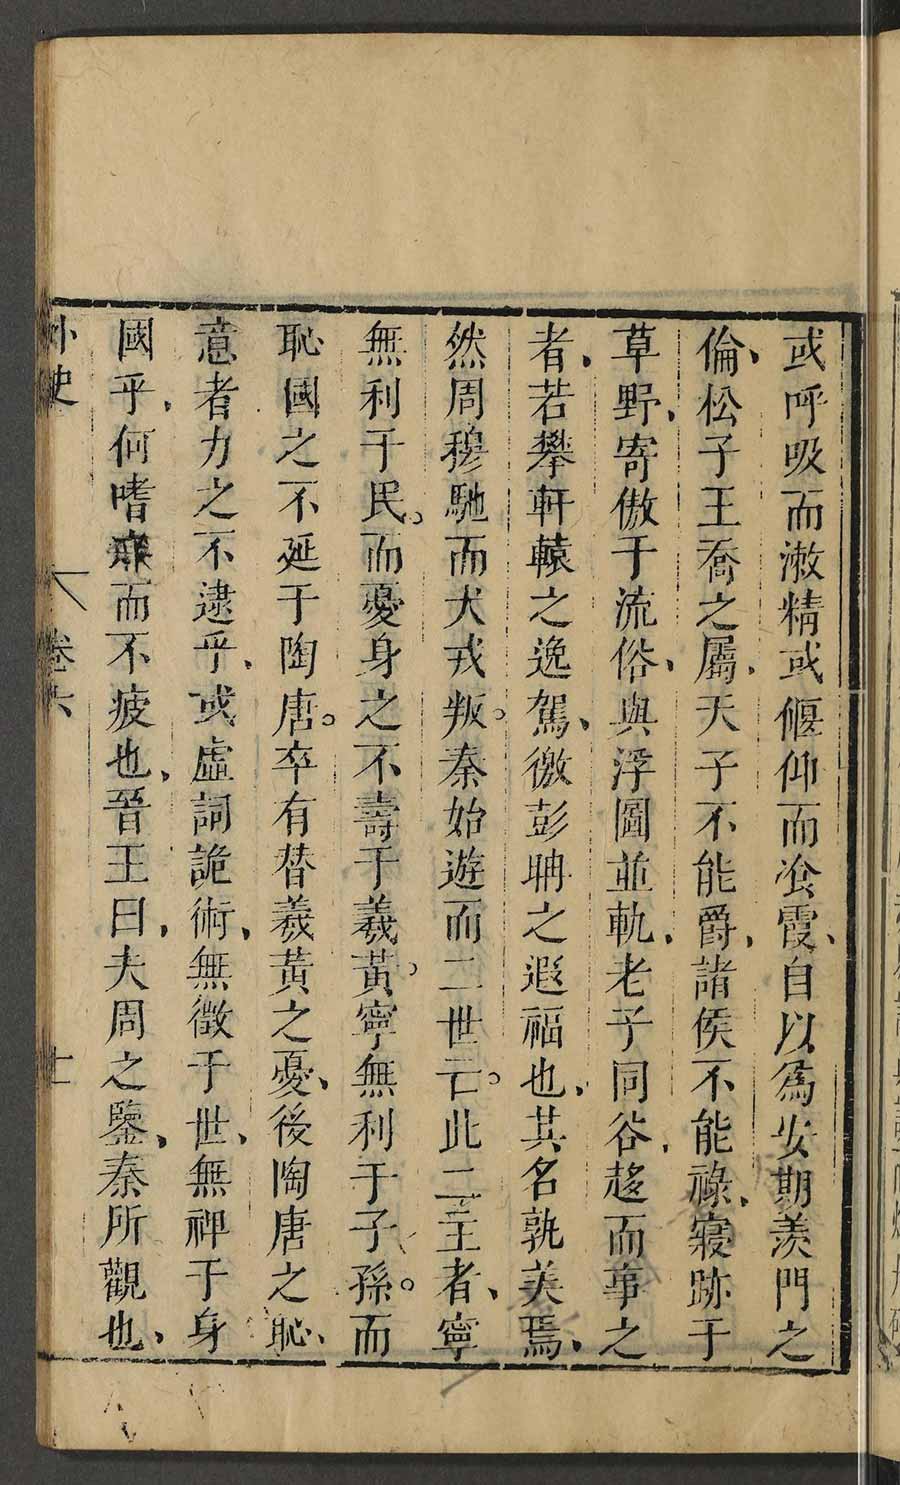 或呼吸而漱精或偃仰而飡霞、自以爲安期羨門之
倫、松子王喬之屬、天子不能爵、諸侯不能祿、寢跡于
草野、寄傲于流俗、與浮圖並軌、老子同谷、趍而事之
者、若攀軒轅之逸駕、徼彭聃之遐福也、其名孰美焉、
然周穆馳而犬戎叛。秦始遊而二世亡。此二主者、寧
無利于民。而憂身之不壽于羲黃。寧無利于子孫。而
恥國之不延于陶唐。卒有替羲黃之憂、後陶唐之恥、
意者力之不逮乎、或虛詞詭術、無徵于世、無裨于身
國乎、何嗜而不疲也、晉王曰、夫周之鑒、秦所觀也、
外史
卷六
十